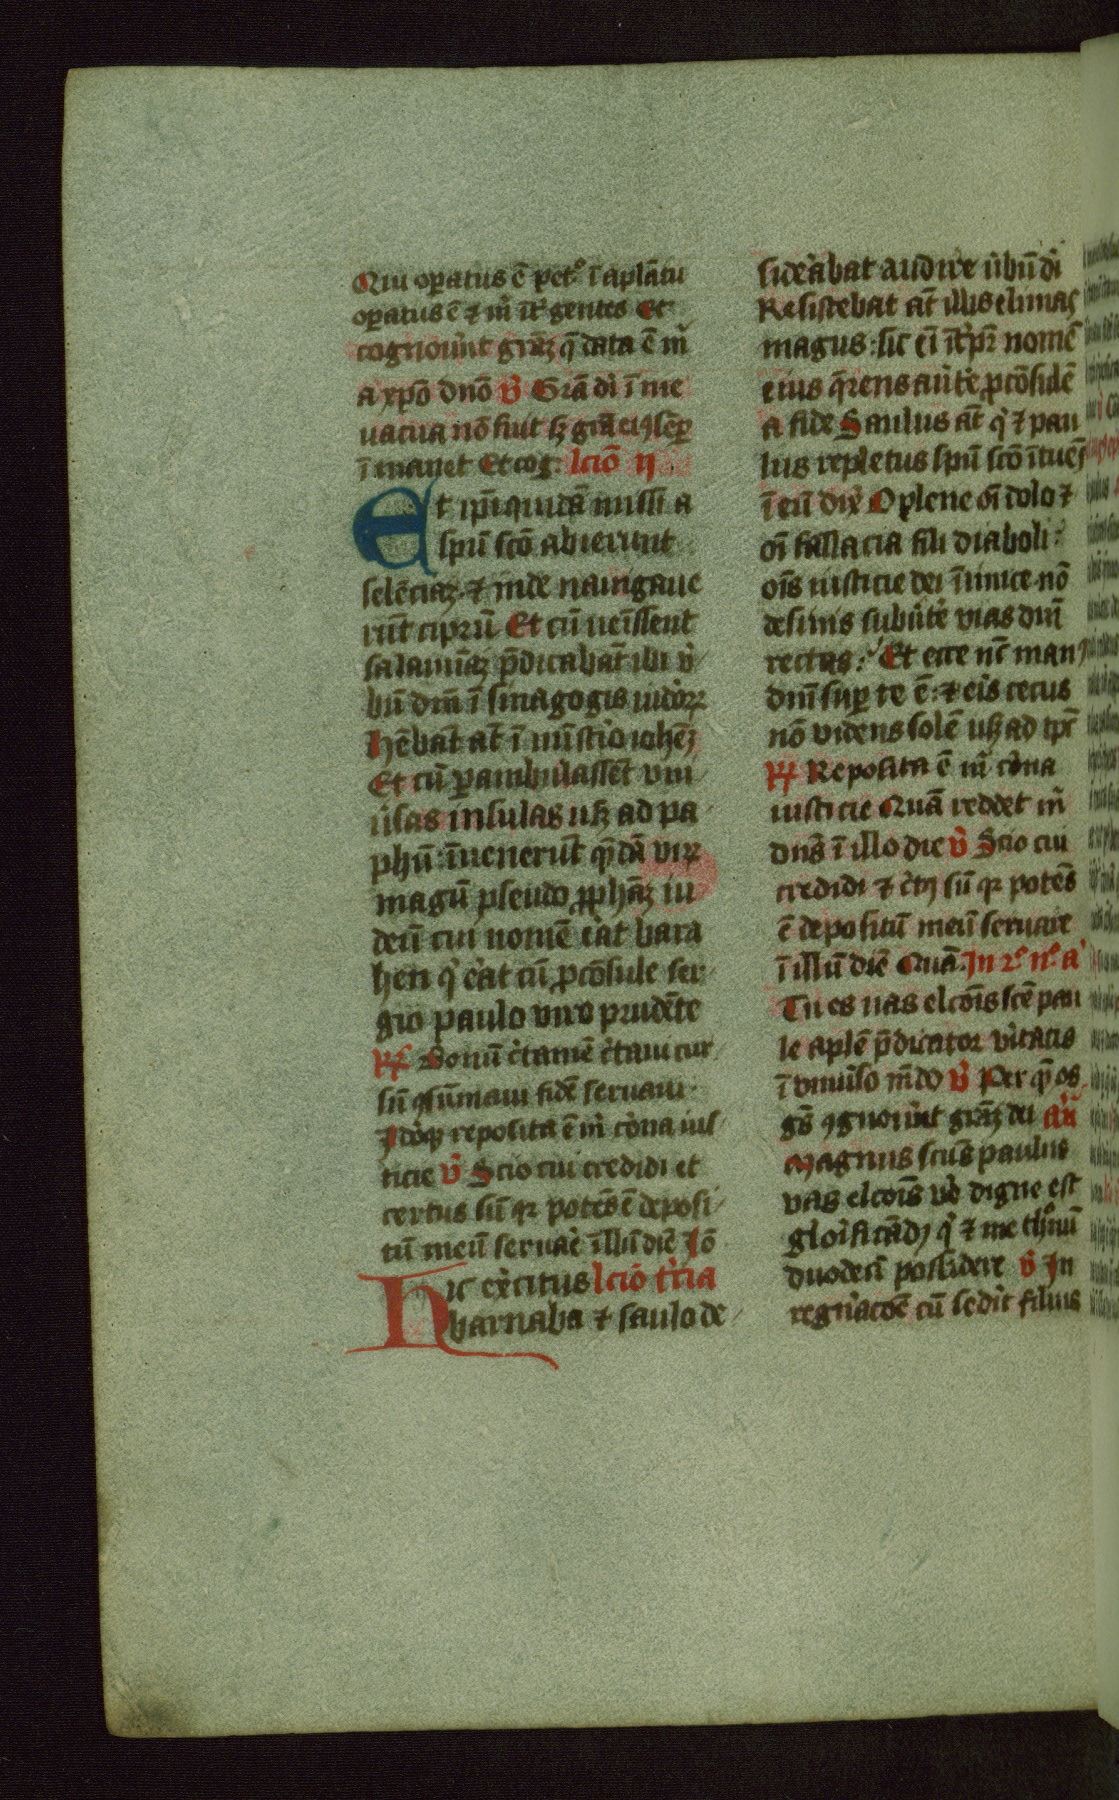 Qui oꝑatus ē petº ī aplātu
oꝑatus ē ⁊ m̄ īt̄ gentes Et
cognouer̄t grāꝫ q̄ data ē m̄
a xp̄o dn̄o v̄ Grā dī ī me
uacua nō fuit sꝫ grā eiꝰ sēꝑ
ī manet Et cog. lcīō ij
Et ip̄i quidā missi a
sp̄ū sc̄o abierunt
selēciaꝫ ⁊ īnde nauigaue
rūt ciprū Et cū ueīssent
salamīaꝫ p̄dicabāt illi v̄
bū dn̄i ī sinagogis iudeoꝝ
hēbāt āt ī mīst̄io ioheꝫ
Et cū ꝑambulassēt vni
u̓sas insulas usꝫ ad pa
phū: īuenerūt q̄dā virꝫ
magū pseudo ꝓphāꝫ iu
deū cui nomē erat bara
hen q̓ erat cū ꝓcōsule ser
gio paulo viro prudēte
R̷ Bonū c̄tamē c̄taui cur
sū ꝯsūmaui fidē seruaui
Jdeoꝙ reposita ē m̄ corona ius
ticie v̄ Scio cui credidi et
certus sū qꝛ potēs ē deposi
tū meū seruare ī illū diē Jō
Hic excitus lcīō t̄cia
barnaba ⁊ saulo de
sid̓abat audire ūbū dī
Resistebat āt illis elimas
magus: sic eī īt̓p̄r̄ nomē
eius q̄rens aūte ꝓcōsulē
a fide Saulus āt q̓ ⁊ pau
lus repletus sp̄ū sc̄o ītuēs
ī eū dix̄ O plene oī dolo ⁊
oī fallacia fili diaboli:
oīs iusticie dei īimice nō
desinis subūt̓e vias dn̄i
rectas: Et ecce nūc manꝰ
dn̄i suꝑ te ē: ⁊ eris cecus
nō videns solē usꝫ ad tp̄s
R̷ Reposita ē m̄ corona
iusticie Quā reddet m̄
dn̄s ī illo die v̄ Scio cui
credidi ⁊ c̄tꝰ sū qꝛ potēs
ē depositū meū seruare
ī illū diē Quā. Jn 2º nº a
Tu es uas elcōis sc̄e pau
le aplē p̄dicator ūitatis
ī vniūso mūdo v̄ Per q̄ os
gs̄ ꝯgnouer̄t grāꝫ dei añ
Magnus sc̄us paulus
vas elcōis v̓e digne est
glorificādꝰ q̓ ⁊ me th̓nū
duodecī possidere v̄ Jn
reg̓nacōē cū sed̓it filius